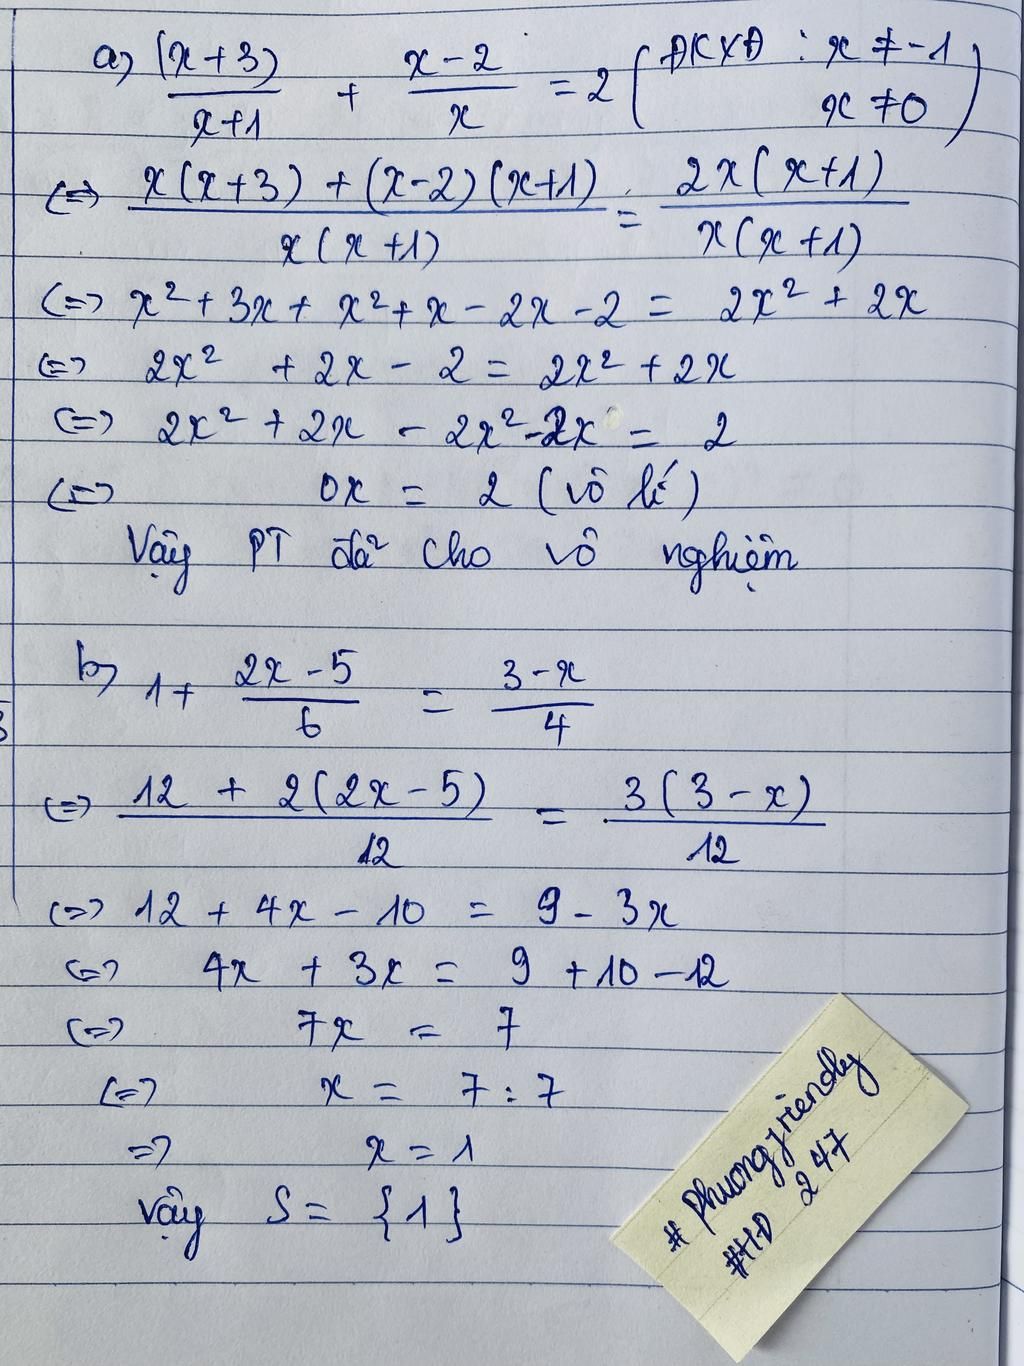 a) (x+3)/(x+1) + (x-2)/x = 2 (ĐKXĐ : x ≠ -1
x ≠ 0)
<=> (x(x+3) + (x-2)(x+1))/(x(x+1)) = (2x(x+1))/(x(x+1))
<=> x² + 3x + x² + x - 2x - 2 = 2x² + 2x
<=> 2x² + 2x - 2 = 2x² + 2x
<=> 2x² + 2x - 2x² - 2x = 2
<=> 0x = 2 (vô lí)
Vậy PT đã cho vô nghiệm
b) 1 + (2x-5)/6 = (3-x)/4
<=> (12 + 2(2x-5))/12 = (3(3-x))/12
<=> 12 + 4x - 10 = 9 - 3x
<=> 4x + 3x = 9 + 10 - 12
<=> 7x = 7
<=> x = 7 : 7
=> x = 1
Vậy S = {1}
# phuongfriendly
#HD 247